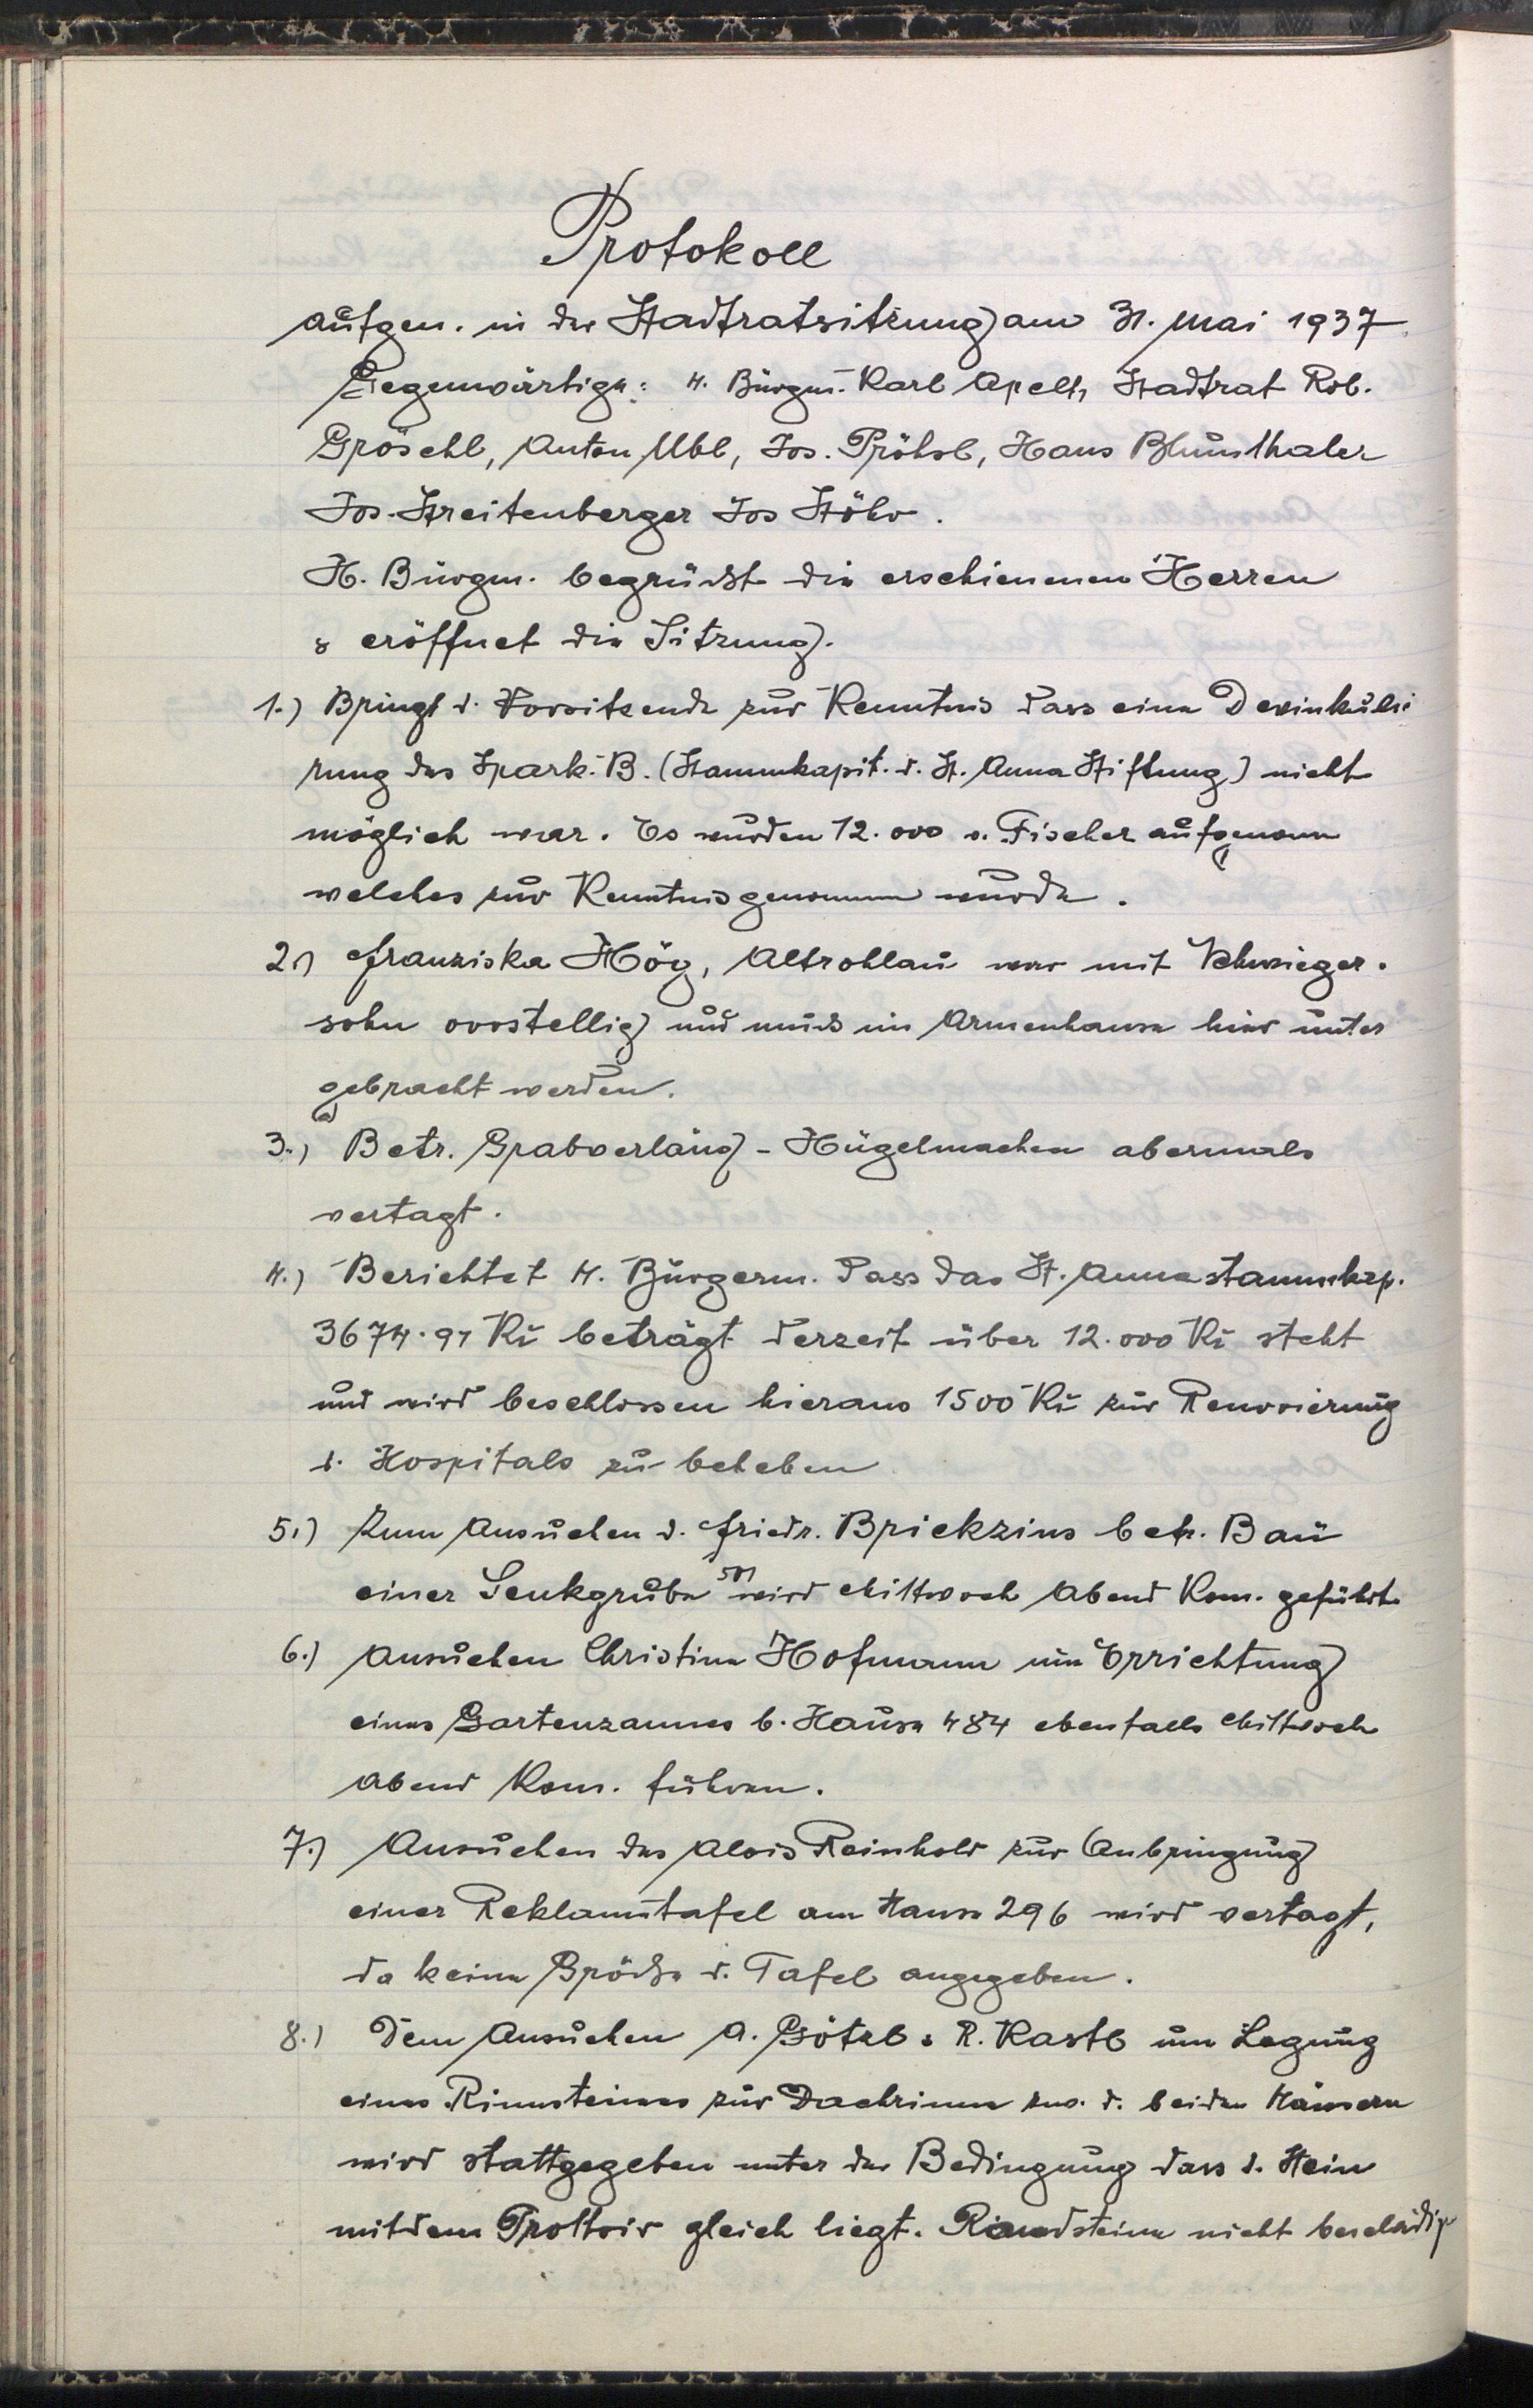 Protokoll
aufgen. in der Stadtratsitzung am 31. Mai 1937
Gegenwärtige: H. Bürgm. Karl Apelt, Stadtrat Rob.
Gröschl, Anton Ubl, Jos. Pröhsl, Hans Blumthaler
Jos. Streitenberger Jos Stöhr.
H. Bürgm. begrüsst die erschienenen Herren
& eröffnet die Sitzung.
1.) Bringt d. Vorsitzende zur Kenntnis dass eine Devinkuli
rung des Spark. B. (Stammkapit. d. St. Anna Stiftung) nicht
möglich war. Es wurden 12.000 v. Fischer aufgenomm
welches zur Kenntnis genommen wurde.
2.) Franziska Hög, Altrohlau war mit Schwieger.
sohn vorstellig und muss im Armenhause hier unter
gebracht werden.
3.) Betr. Grabverläng - Hügelmachen abermals
vertagt.
4.) Berichtet H. Bürgerm. dass das St. Anna stammkap.
3674.91 Kč beträgt derzeit über 12.000 Kč steht
und wird beschlossen hieraus 1500 Kč zur Renovierung
d. Hospitals zu beheben
5.) Zum Ansuchen d. Friedr. Brickzius betr. Bau
einer Senkgrube 501 wird Mittwoch Abend Kom. geführt.
6.) Ansuchen Christine Hofmann um Errichtung
eines Gartenzaunes b. Hause 484 ebenfalls Mittwoch
Abend Kom. führen.
7.) Ansuchen des Alois Reinhold zur Anbringung
einer Reklamtafel am Hause 296 wird vertagt,
da keine Grösse d. Tafel angegeben.
8.) Dem Ansuchen A. Götzl & R. Kastl um Legung
eines Rinnsteines zur Dachrinne zw. d. beiden Häusern
wird stattgegeben unter der Bedingung dass d. Stein
mit dem Trottoir gleich liegt. Randsteine nicht beschädig